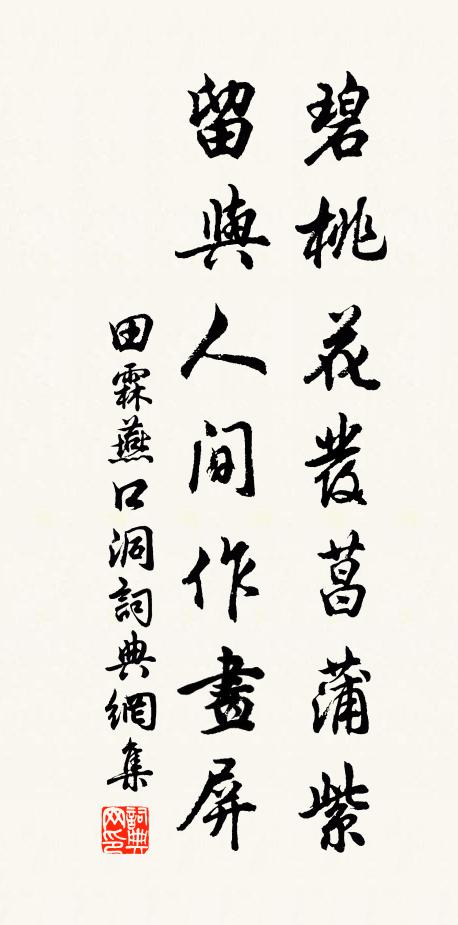 碧桃花發菖蒲紫
留與人間作畫屏
田霖燕口洞詞典網集
詞典网印